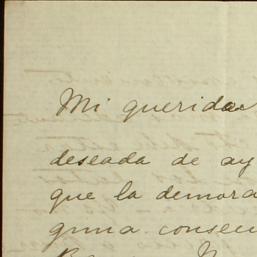 Mi querida
deseada de ay
que la demora
guna consecu